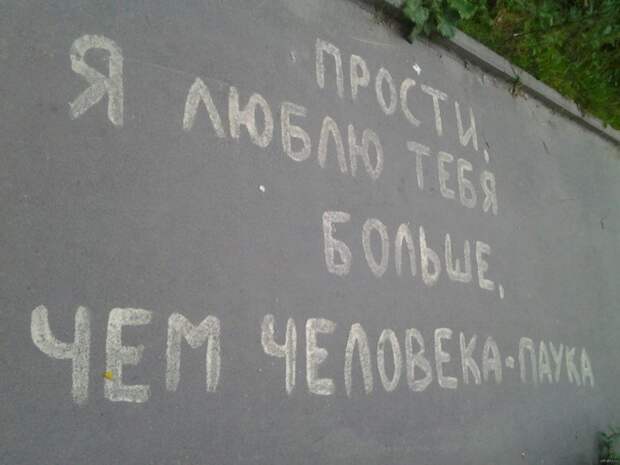 ПРОСТИ,
Я ЛЮБЛЮ ТЕБЯ
БОЛЬШЕ,
ЧЕМ ЧЕЛОВЕКА-ПАУКА